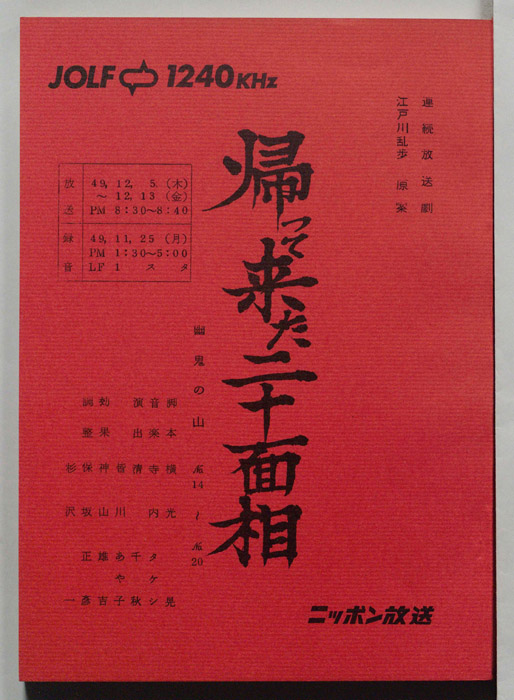 JOLF 1240KHz
連続放送劇
江戸川乱歩 原案
帰って来た二十面相
幽鬼の山 №14〜№20
放送 49, 12, 5 (木)
〜 12, 13 (金)
PM 8:30〜8:40
録音 49, 11, 25 (月)
PM 1:30〜5:00
LF 1 スタ
脚本 横光晃
音楽 寺内タケシ
演出 清 千秋
川あや子
効果 神山雄吉
調整 保坂正彦
杉沢 一
ニッポン放送